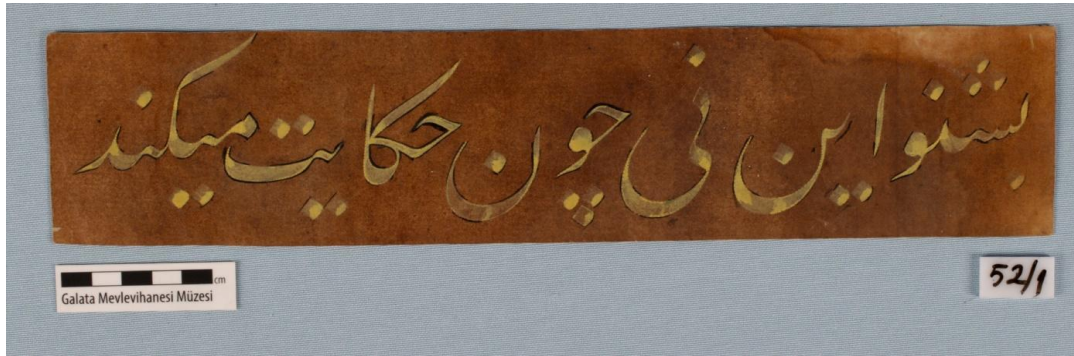 بشنو این نی چون حکایت میکند
cm
Galata Mevlevihanesi Müzesi
52/1